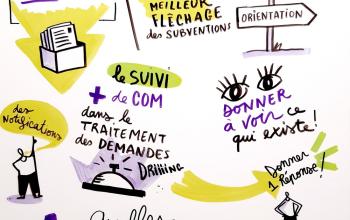 MEILLEUR
FLÉCHAGE
des SUBVENTIONS
ORIENTATION
le SUIVI
+ de COM
dans le
TRAITEMENT
des DEMANDES
DRiiiing
des
Notifications
DONNER
à voir ce
qui existe!
Donner
1 Réponse!